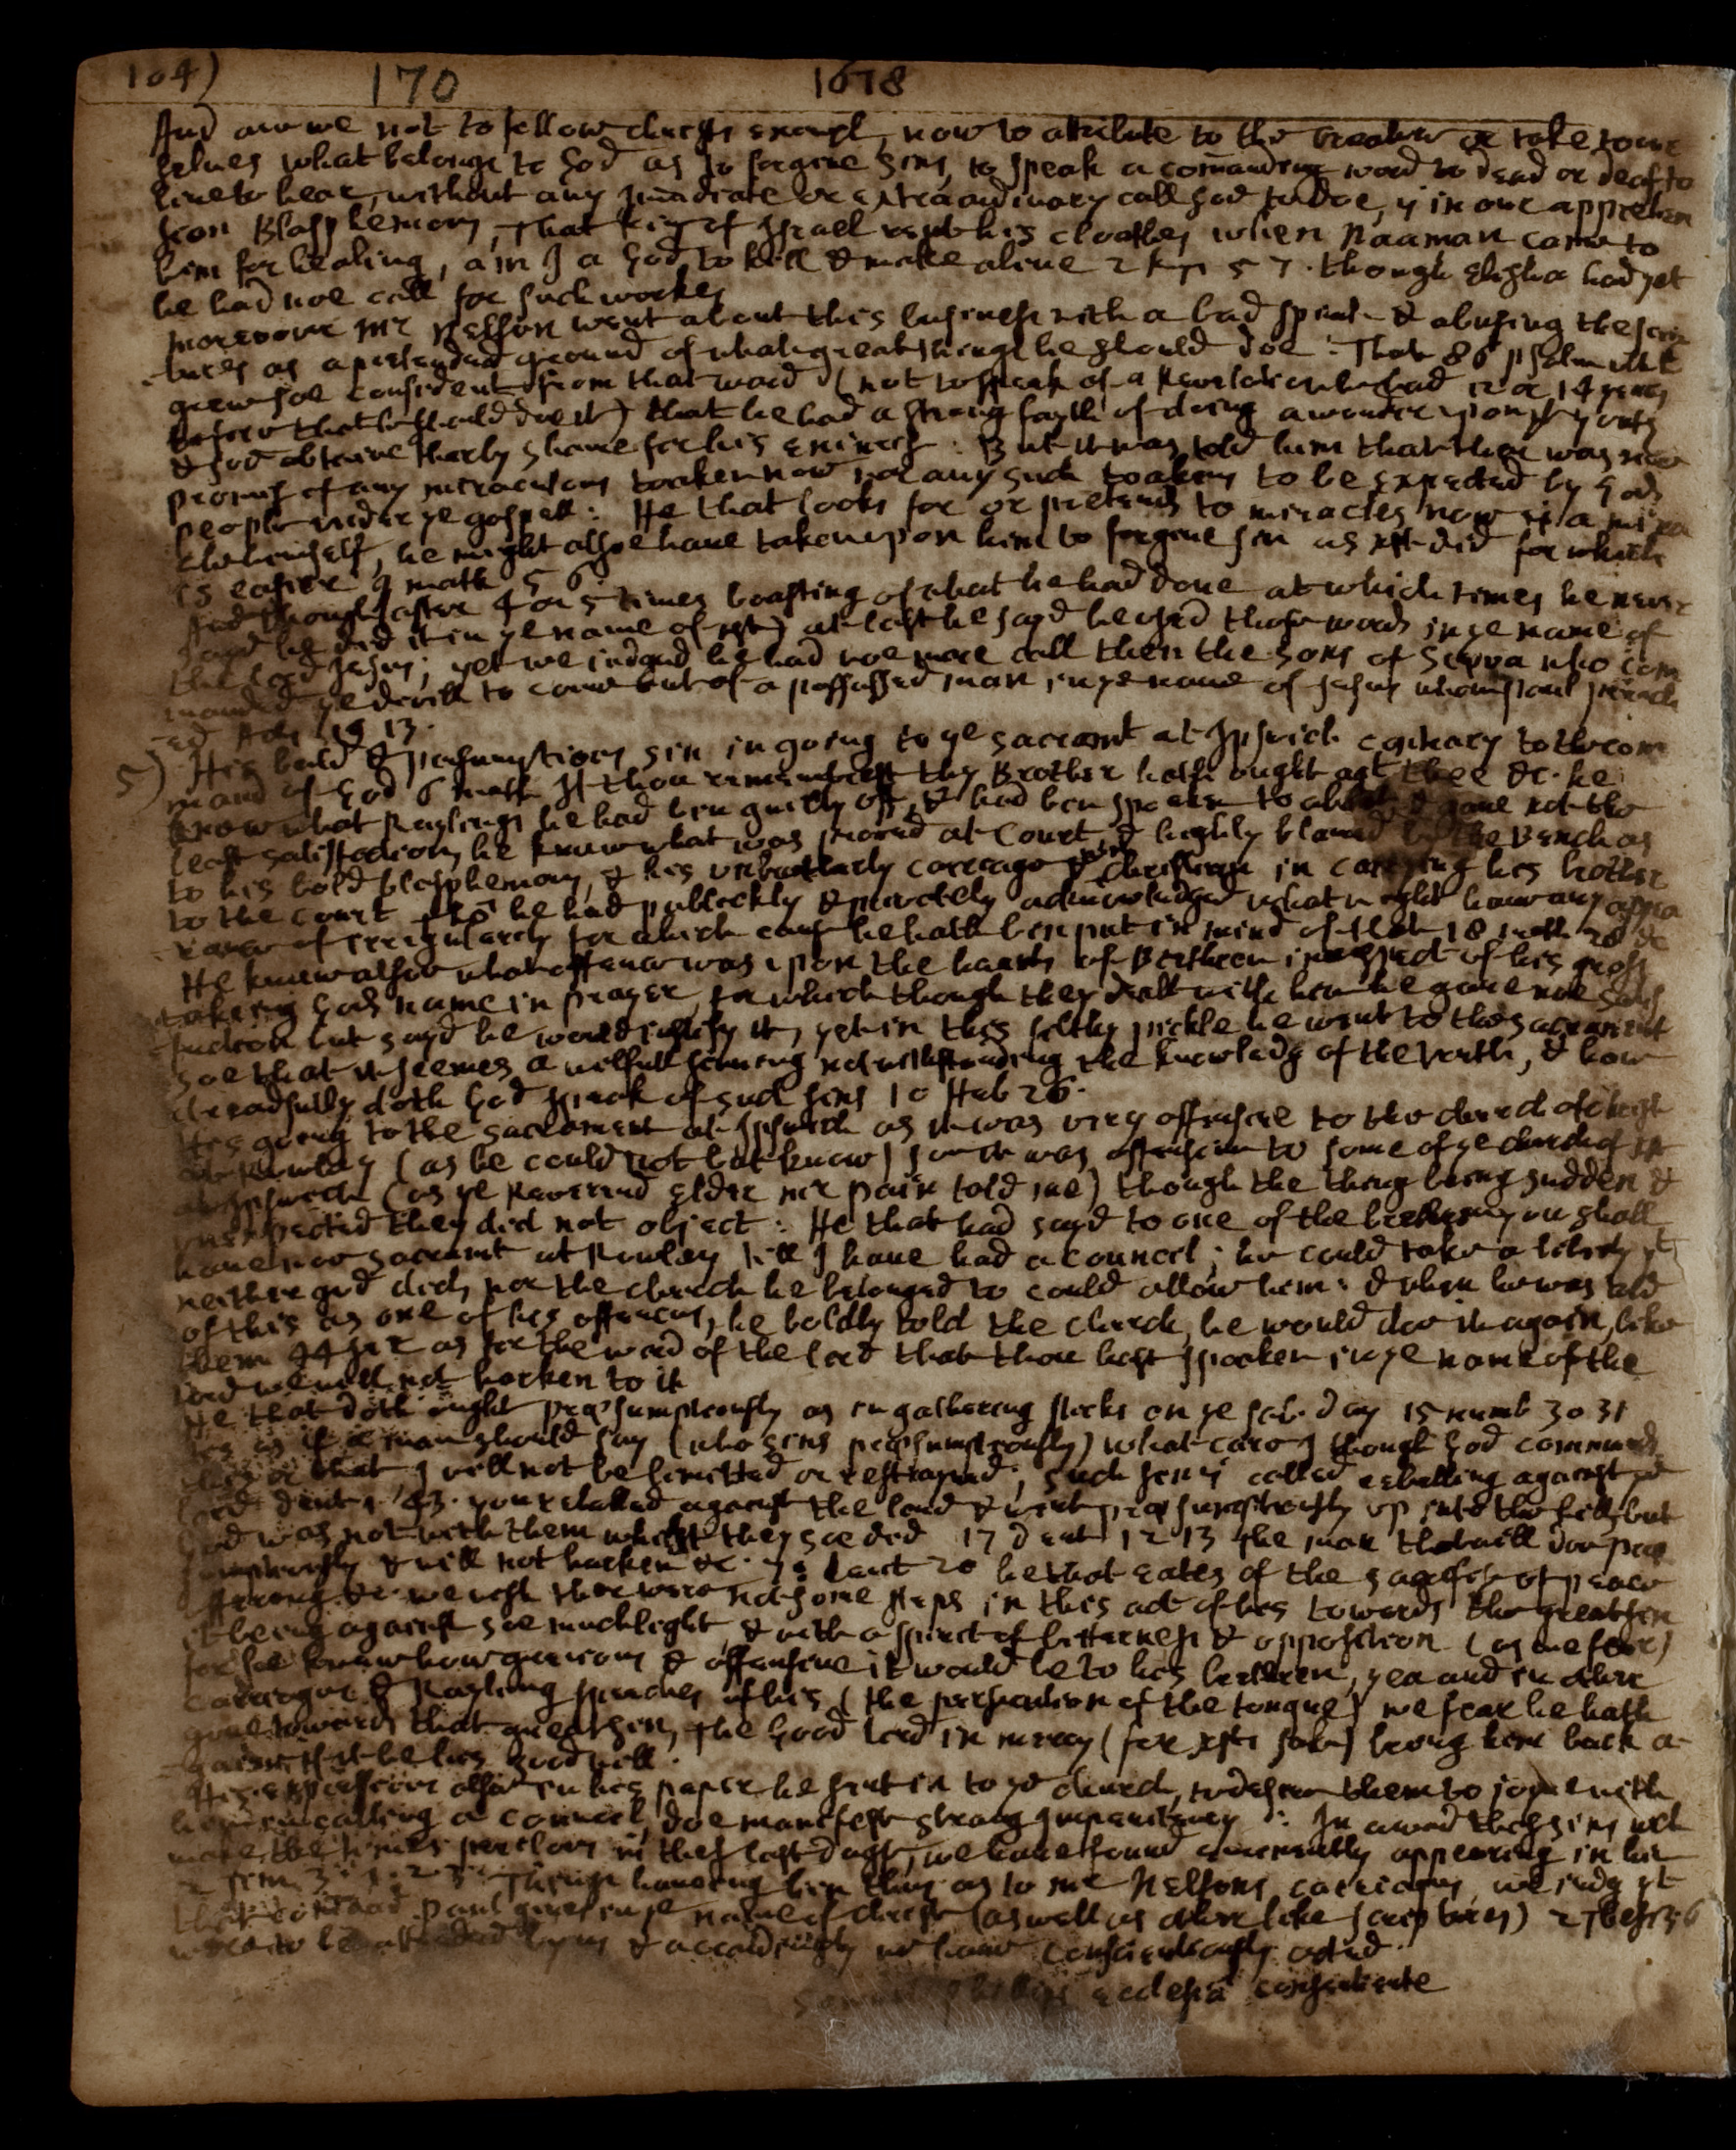 104) 170 1678
And are we not to follow christs exampl, now to atribute to the Creature or take to our
selues what belongs to God as to forgiue sins, to speak a comanding word to dead or deaf to
liue to hear, without any Imediate or extraordinary call God to doe, is in our apprehen
sion Blasphemous, That king of Israell rent his cloathes when Naaman came to
him for healing, am I a God to kill & make aliue 2 kgs 5 7. though Elisha had yet
he had noe call for such workes
moreover Mr Nelson went about this busines with a bad spirit & abusing the scrip
tures as a pretended ground of what great things he should doe: That 86 psalm ult
grew soe confident from that word (not to speak of a Revelation he had 12 or 14 years
before that he should doe it) that he had a strong fayth of doing a wonder upon this youth
& soe obteine therby shame for his enimies: But it was told him that ther was noe
promis of any miraculous token now nor any such tookens to be expected by Gods
people under ye gospell: He that looks for or pretends to miracles now is a mira
cle himself, he might alsoe haue taken upon him to forgiue sin as xt did for which
is easier 9 math 5 6.
And though (after 4 or 5 times boasting of what he had done at which times he never
sayd he did it in ye name of xt) at last he sayd he used those words in ye name of
the lord Jesus; yet we iudged he had noe more call then the sons of Sceva who com
manded ye devill to come out of a possessed man in ye name of Jesus whom paul preach
ed Acts 19 13.
5) His bold & presumptious sin in going to ye sacramt at Ipswich contrary to the com
mand of God 5 math If thou remembrest thy Brother hath ought agt thee &c. he
know what Raylings he had ben guilty off, & had ben spoken to about & gaue not the
least satisfaction, he knew what was proved at Court & highly blamed by the Bench as
to his bold blasphemy, & his unbrotherly carriage & unchristian in carrying his brother
to the court tho he had publickly & privately acknowledged what might haue any appea
rance of irregularity for which cause he hath ben put in mind of that 18 math 28 &c
He knew alsoe what offence was upon the hearts of Brethren in respect of his gross
taking Gods name in prayer, for which though they dealt with him he gaue noe satis
faction but sayd he would iustify it, yet in this filthy pickle he went to the sacrament
soe that it seemes a wilfull sinning notwithstanding the knowledg of the truth, & how
dreadfully doth God speak of such sins 10 Heb 26.
His going to the sacrament at Ipswich as it was very offensiue to the church of christ
at Rowley (as he could not but know) soe it was offensiue to some of ye church of xt
at Ipswich (as ye Reverend Elder mr pain told me) though the thing being sudden &
unexpected they did not object: He that had sayd to one of the brethren you shall
haue noe sacramt at Rowley till I haue had a councel; he could take a liberty yt
neither god did, nor the church he belonged to could allow him: & when he was told
of this as one of his offences, he boldly told the church, he would doe it again, like
them 44 Jer as for the word of the lord that thou hast spoken in ye name of the
lord we will not harken to it
He that doth ought presumptuously as in gathering sticks on ye sab. day 15 numb 30 31
tis as if a man should say (who sins presumptuously) what care I though God commands
this or that I will not be limitted or restrayned; such sin is called rebelling against ye
lord deut 1 43. you rebelled against the lord & went presumptuously up into the hill, but
God was not with them 17 deut 12 13 the man that will doe pres
umptuously & will not harken &c. 7 Levit 20 he that eates of the sacrifice of peace
offering &c. we wish there were not some steps in this act of his towards the great sin
it being against soe much light, & with a spirit of bitternes & opposition (as we fear)
for he knew how grievous & offensiue it would be to his brethren, yea and in other
carriages & Rayling speeches of his (the persecution of the tongue) we fear he hath
gone towards that great sin, The good lord in mercy (for xts sake) bring him back a-
gain if it be his good will.
His expressions alsoe in his paper he sent in to ye church, to desire them to joyne with
him in calling a councel, doe manifest strong impenitency: In a word those sins wch
make the times perilous in thes last days, we haue found eminently appearing in him
2 Tim 3. 1. 2 3. Things haueing ben thus as to mr Nelsons carriages, we iudg yt
that comand paul giues in ye name of christ (as well as other like scriptures) 2 Thess 3 6
were to be attended by us & accordingly we haue conscientiously acted.
Samuel phillips ecclesia consentiente